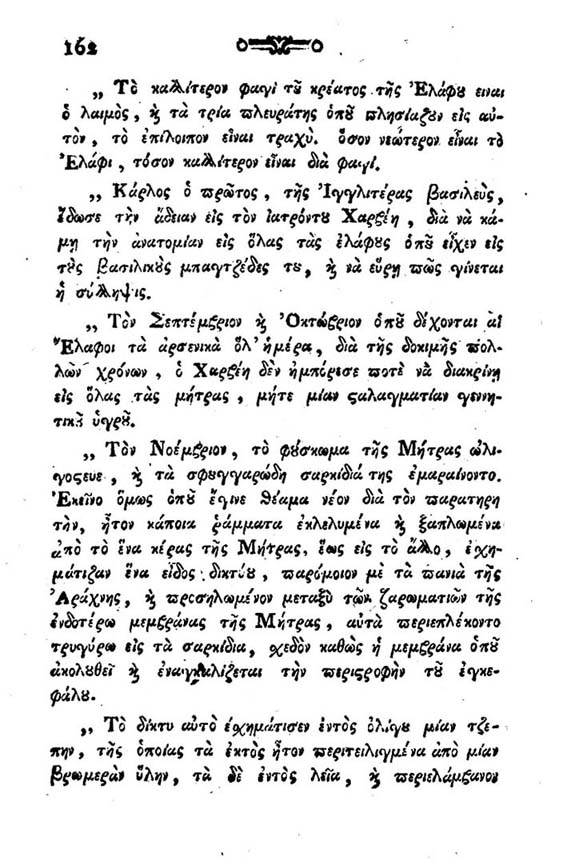 162
„ Τὸ καλλίτερον φαγὶ τȣ̃ κρέατος τῆς Ἐλάφȣ ειναι
ὁ λαιμὸς, ϗ τὰ τρία πλευράτης ὁπȣ̃ πλησίαζȣν εἰς αὐ-
τὸν, τὸ ἐπίλοιπον εἶναι τραχύ. ὅσον νεώτερον εἶναι τὸ
Ἐλάφι, τόσον καλλίτερον εἶναι διὰ φαγί.
„ Κάρλος ὁ πρῶτος, τῆς Ἰγγλιτέρας βασιλεὺς,
ἔδωσε τὴν ἄδειαν εἰς τὸν ἰατρόντȣ Χαρβέη, διὰ νὰ κά-
μῃ τὴν ἀνατομίαν εἰς ὅλας τὰς ἐλάφȣς ὁπȣ̃ εἶχεν εἰς
τȣ̀ς βασιλικȣ̀ς μπαγτζέδες τȣ, ϗ νὰ εὕρῃ πῶς γίνεται
ἡ σύλληψις.
„ Τὸν Σεπτέμβριον ϗ Ὀκτώβριον ὁπȣ̃ δέχονται αἱ
Ἔλαφοι τὰ ἀρσενικὰ ὅλ' ἡμέρα, διὰ τῆς δοκιμῆς πολ-
λῶν χρόνων, ὁ Χαρβέη δὲν ἠμπόρεσε ποτὲ νὰ διακρίνῃ
εἰς ὅλας τὰς μήτρας, μήτε μίαν ϛαλαγματίαν γεννη-
τικȣ̃ ὑγρȣ̃.
„ Τὸν Νοέμβριον, τὸ φύσκωμα τῆς Μήτρας ὠλι-
γοϛευε, ϗ τὰ σφυγγαρώδη σαρκίδιά της ἐμαραίνοντο.
Ἐκεῖνο ὅμως ὁπȣ̃ ἔγινε θέαμα νέον διὰ τὸν παρατηρη
τὴν, ἦτον κάποια ῥάμματα ἐκλελυμένα ϗ ξαπλωμένα
ἀπὸ τὸ ἕνα κέρας τῆς Μήτρας, ἕως εἰς τὸ ἄλλο, ἐχη-
μάτιζαν ἕνα εἶδος δικτύȣ, παρόμοιον μὲ τὰ πανιὰ τῆς
Ἀράχνης, ϗ προσηλωμένον μεταξὺ τῶν ζαρωματιῶν τῆς
ἐνδοτέρω μεμβράνας τῆς Μήτρας, αὐτὰ περιεπλέκοντο
τρυγύρω εἰς τὰ σαρκίδια, σχεδὸν καθὼς ἡ μεμβράνα ὁπȣ̃
ἀκολȣθεῖ ϗ ἐναγκαλίζεται τὴν περιϛροφὴν τȣ̃ ἐγκε-
φάλȣ.
„ Τὸ δίκτυ αὐτὸ ἐσχημάτισεν ἐντὸς ὀλίγȣ μίαν τζε-
πην, τῆς ὁποίας τὰ ἐκτὸς ἦτον περιτειλιγμένα ἀπὸ μίαν
βρωμερὰν ὕλην, τὰ δὲ ἐντὸς λεῖα, ϗ περιελάμβανον